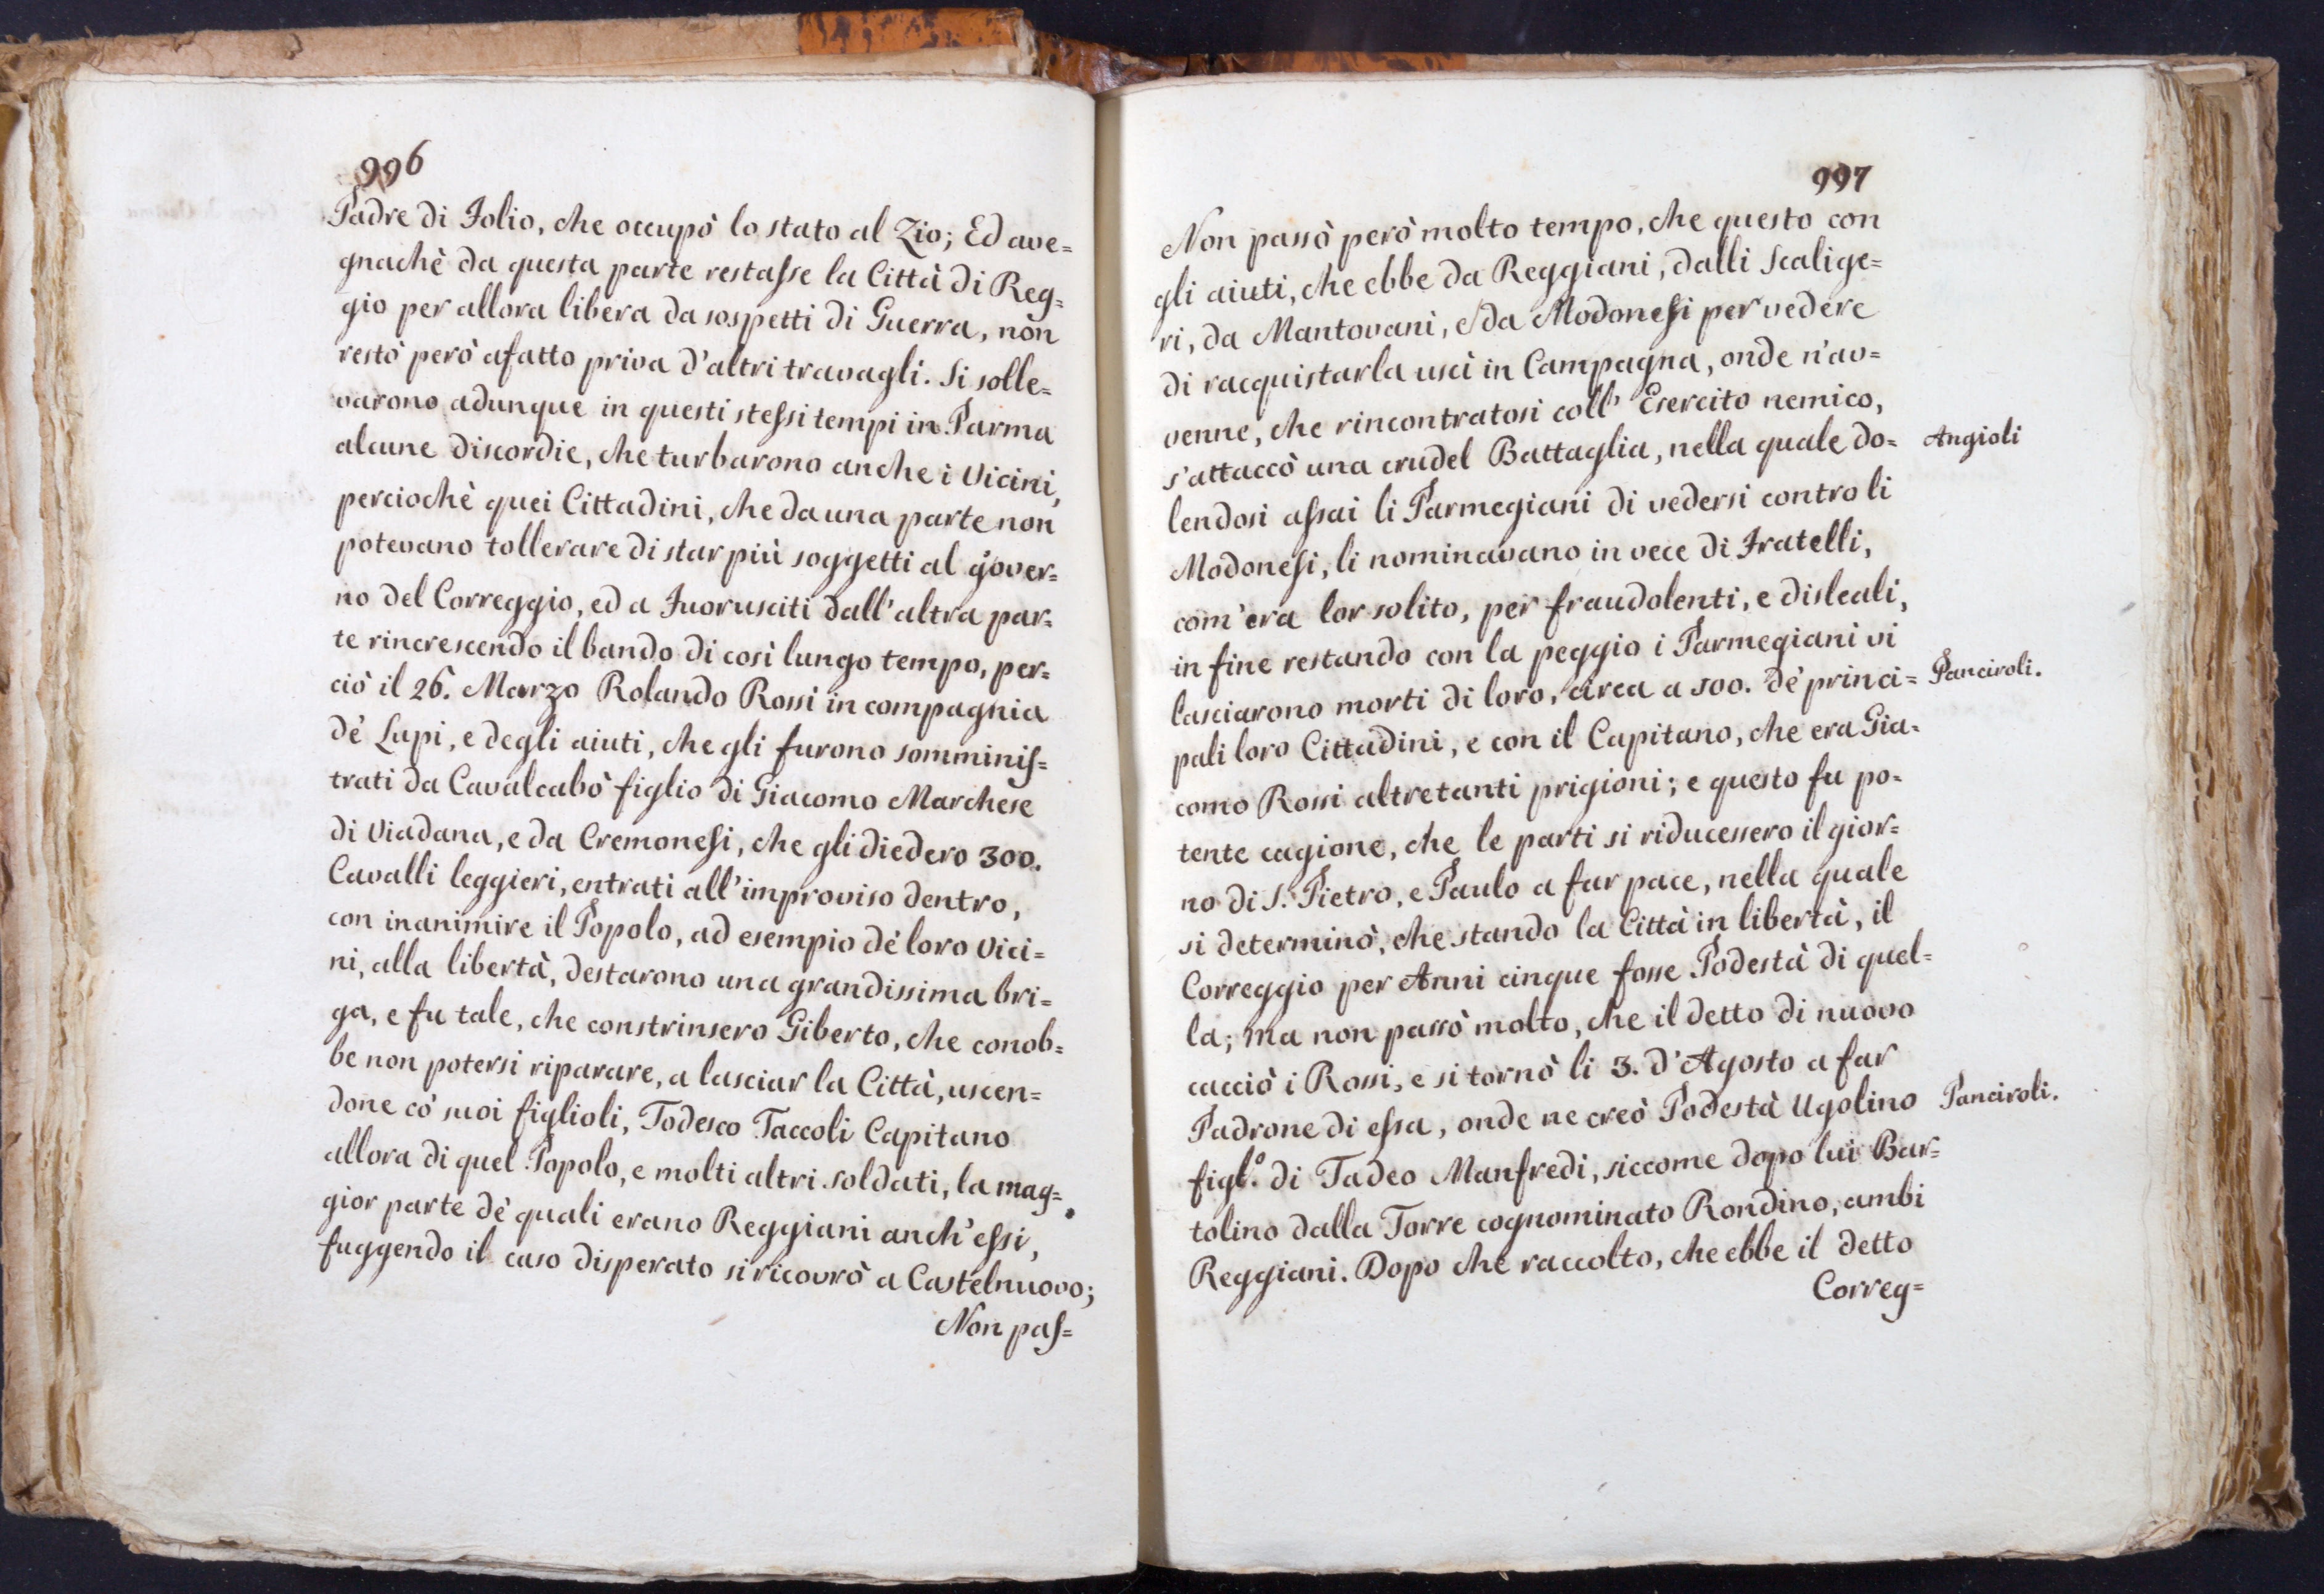 996
Padre di Folio, che occupò lo stato al Zio; Ed ave=
gnachè da questa parte restasse la Città di Reg=
gio per allora libera da sospetti di Guerra, non
restò però afatto priva d'altri travagli. Si solle=
varono adunque in questi stessi tempi in Parma
alcune discordie, che turbarono anche i Vicini,
perciochè quei Cittadini, che da una parte non
potevano tollerare di star più soggetti al gover=
no del Correggio, ed a Fuorusciti dall'altra par=
te rincrescendo il bando di così lungo tempo, per=
ciò il 26. Marzo Rolando Rossi in compagnia
dè Lupi, e degli aiuti, che gli furono somminis=
trati da Cavalcabò figlio di Giacomo Marchese
di Viadana, e da Cremonesi, che gli diedero 300.
Cavalli leggieri, entrati all'improviso dentro,
con inanimire il Popolo, ad esempio dè loro Vici=
ni, alla libertà, destarono una grandissima bri=
ga, e fu tale, che constrinsero Giberto, che conob=
be non potersi riparare, a lasciar la Città, uscen=
done cò suoi figlioli, Todesco Taccoli Capitano
allora di quel Popolo, e molti altri soldati, la mag=
gior parte dè quali erano Reggiani anch'essi,
fuggendo il caso disperato si ricovrò a Castelnuovo;
Non pas=
997
Non passò però molto tempo, che questo con
gli aiuti, che ebbe da Reggiani, dalli Scalige=
ri, da Mantovani, e da Modonesi per vedere
di racquistarla uscì in Campagna, onde n'av=
venne, che rincontratosi coll' Esercito nemico,
s'attaccò una crudel Battaglia, nella quale do= Angioli
lendosi assai li Parmegiani di vedersi contro li
Modonesi, li nominavano in vece di Fratelli,
com'era lor solito, per fraudolenti, e disleali,
in fine restando con la peggio i Parmegiani vi
lasciarono morti di loro, circa a 500. dè princi= Panciroli.
pali loro Cittadini, e con il Capitano, che era Gia=
como Rossi altretanti prigioni; e questo fu po=
tente cagione, che le parti si riducessero il gior=
no di S. Pietro, e Paulo a far pace, nella quale
si determinò, che stando la Città in libertà, il
Correggio per Anni cinque fosse Podestà di quel=
la; ma non passò molto, che il detto di nuovo
cacciò i Rossi, e si tornò li 3. d'Agosto a far
Padrone di essa, onde ne creò Podestà Ugolino Panciroli.
figl.º di Tadeo Manfredi, siccome dopo lui Bar=
tolino dalla Torre cognominato Rondino, ambi
Reggiani. Dopo che raccolto, che ebbe il detto
Correg=